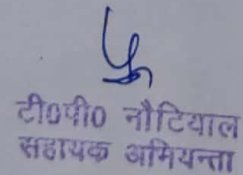 टी०पी० नौटियाल
सहायक अभियन्ता